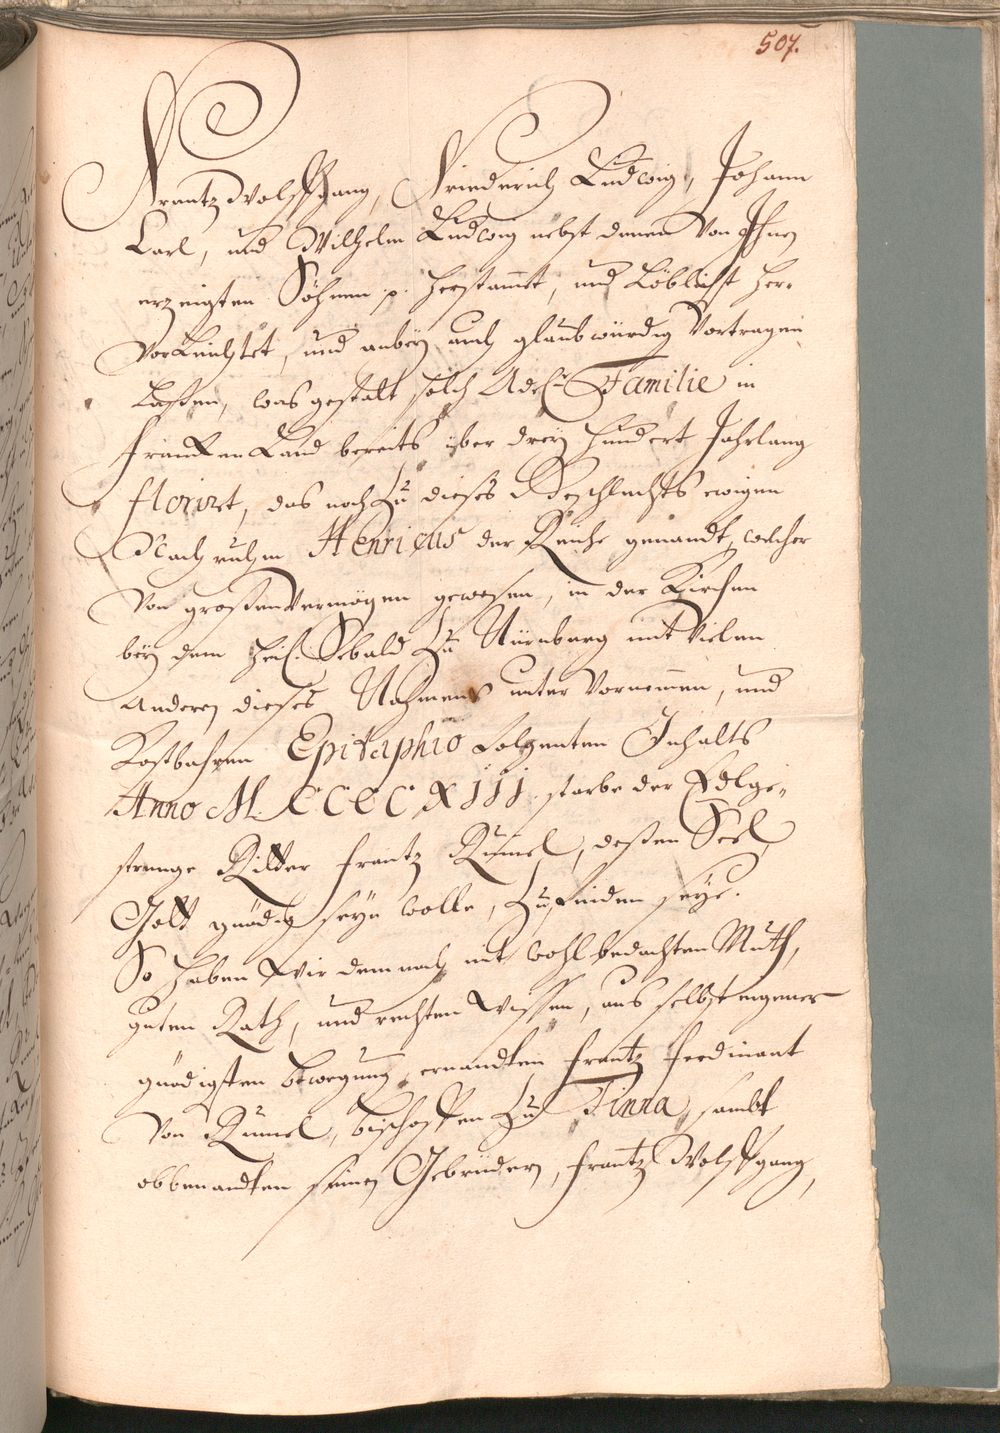 507.
Frantz Wolffgang, Friederich Ludwig, Johann
Carl, und Wilhelm Ludwig nebst denen von Ihnen
erzeigten Söhnen p. herstammet, und Löblichst her-
vorleuchtet, und anbey auch glaubwürdig vortragen
Laßen, was gestalt solch Adel. Familie in
Francken Land bereits über drey hundert Jahrlang
florirt, das noch zu dieses Geschlechts ewigen
Nachruhm Henricus der Reiche genandt, welcher
von großen Vermögen gewesen, in der Kirchen
bey dem Heil. Sebald zu Nürnberg mit vielen
Anderen dieses Nahmens unter Vornemmen, und
Kostbahren Epitaphio folgenten Inhalts
Anno MCCCCXIII starbe der Edlge-
strenge Ritter Frantz Rumel, deßen Seel
Gott gnädig seyn wolle, zufinden seye.
So haben Wir demnach mit wohlbedachten Muth,
guten Rath, und rechten Wissen, aus selbst eigener
gnädigsten bewegung, ernandten Frantz Ferdinant
von Rumel, bischoffen zu Tinna, sambt
obbenandten seinen Gebrüdern, Frantz Wolffgang,